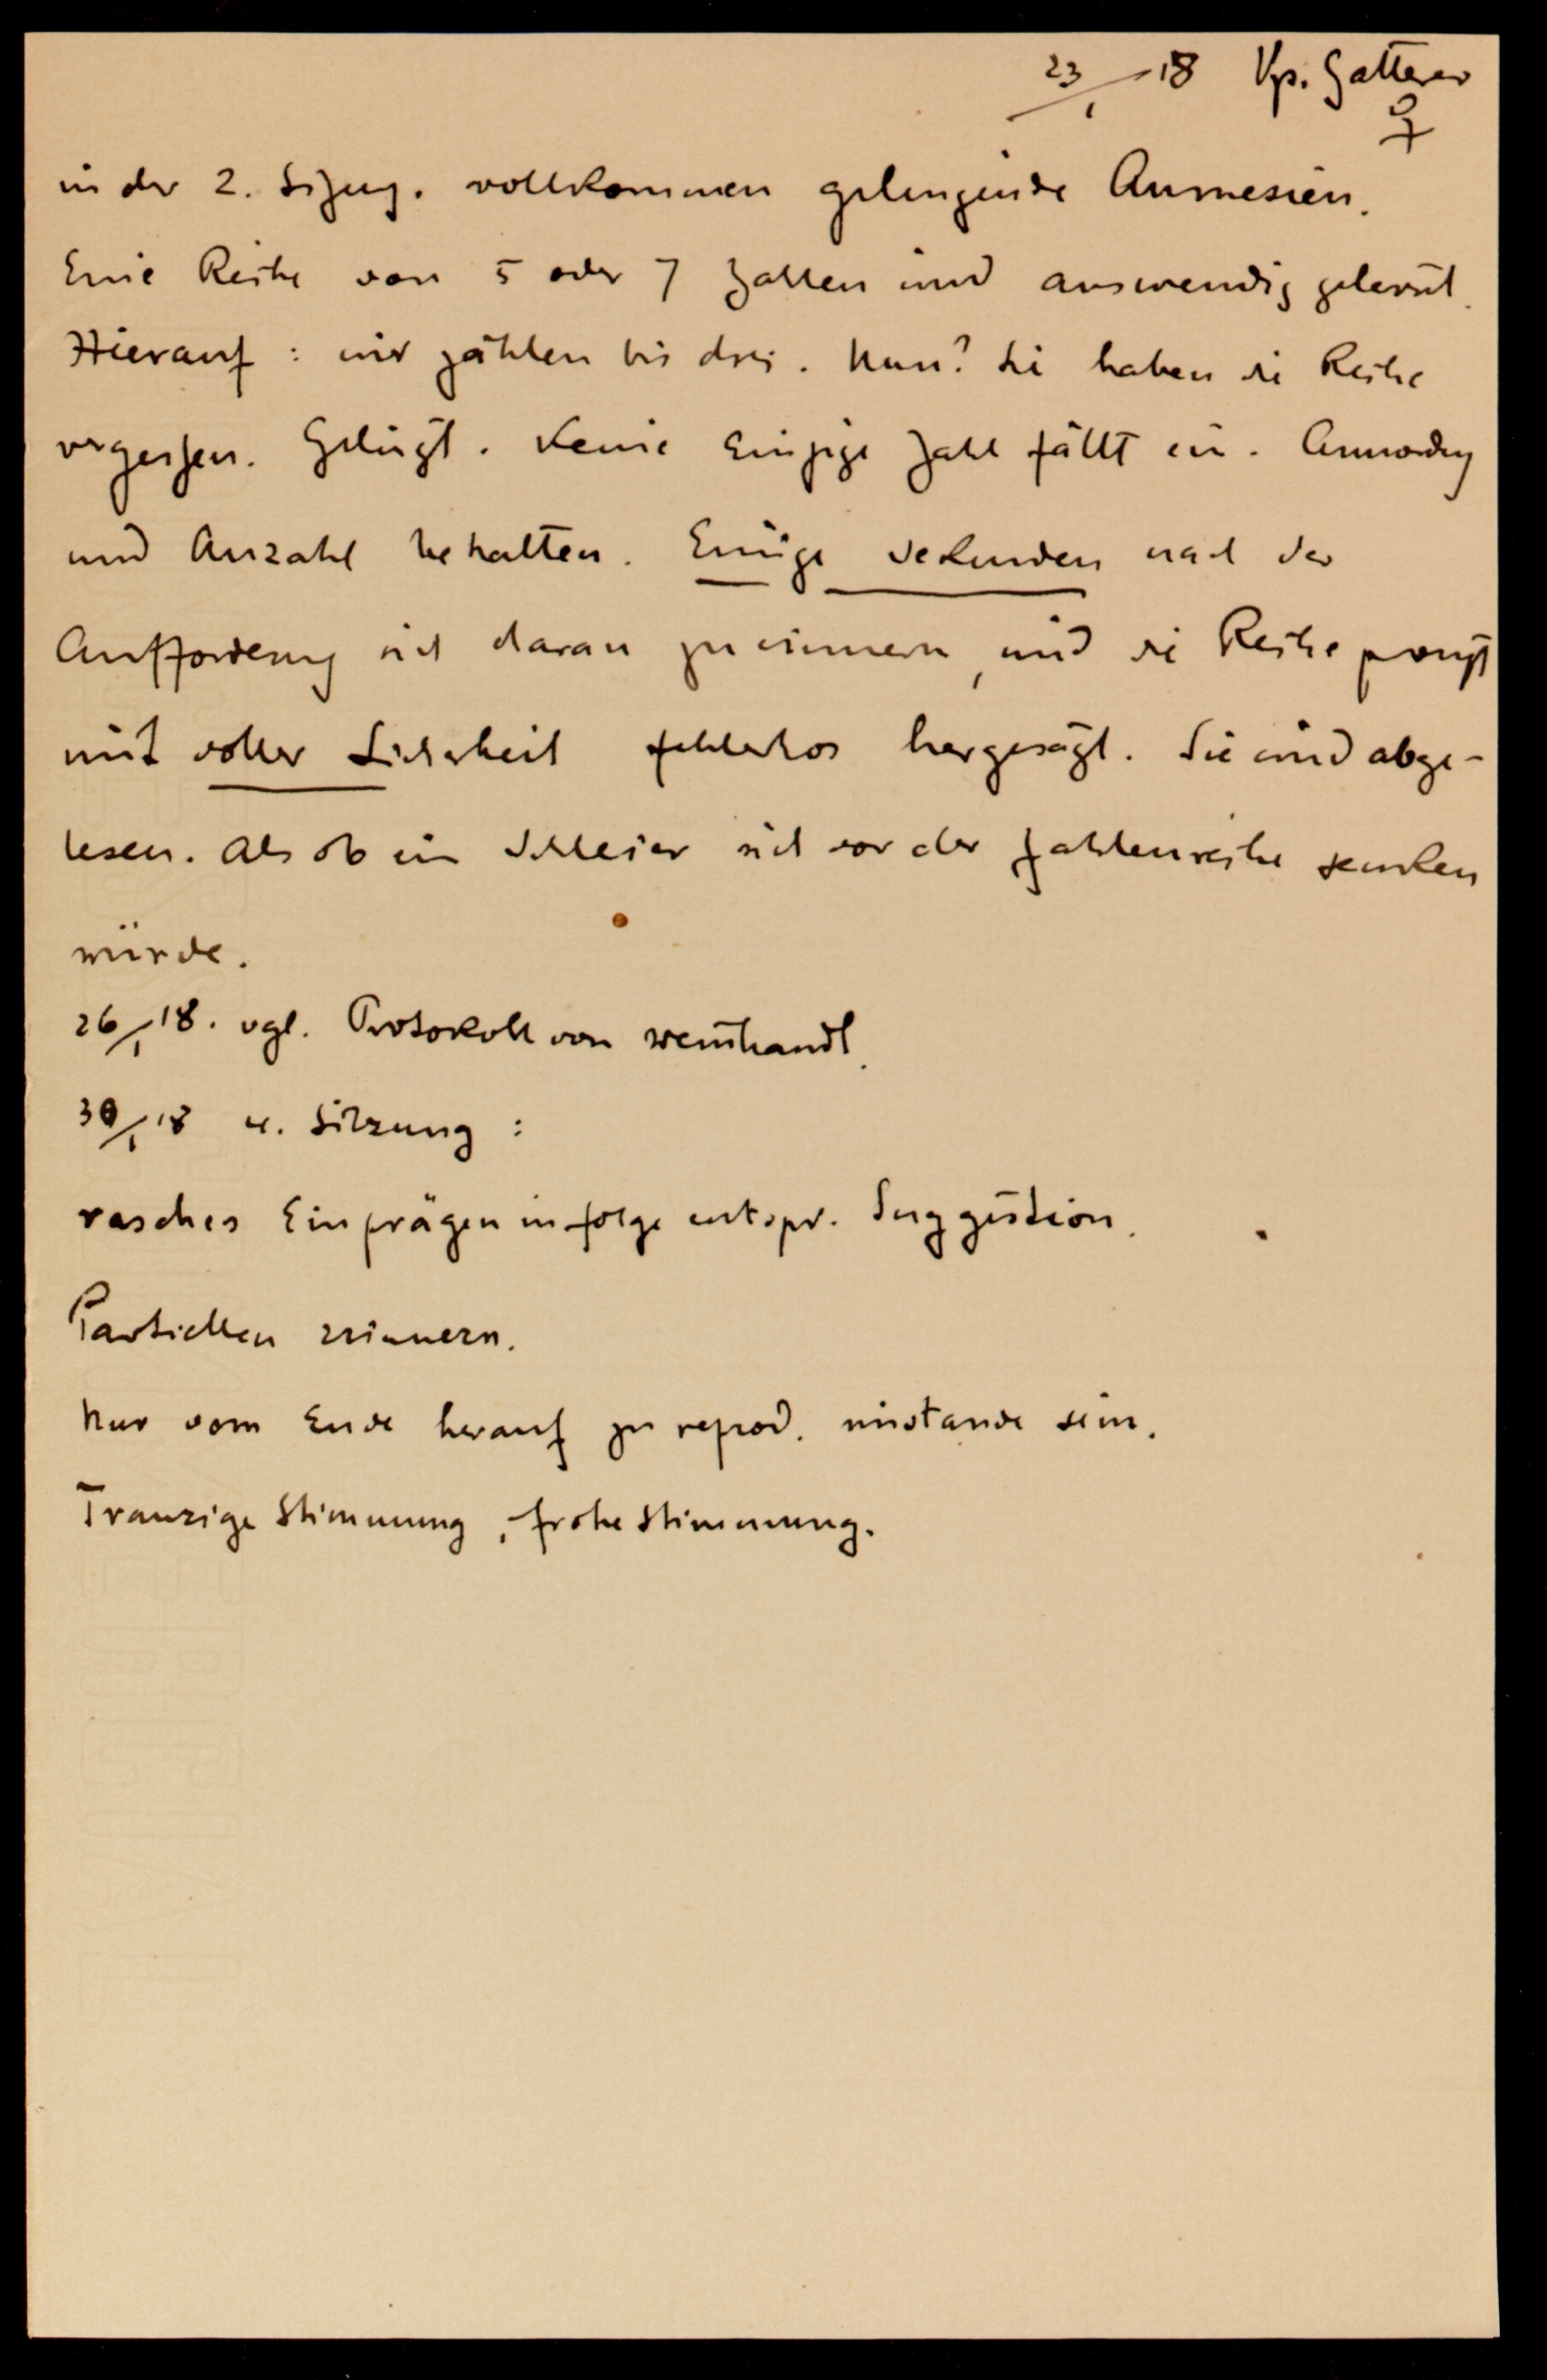 23/1 18 Vp. Gatterer
♀
in der 2. Sizug. vollkommen gelingende Amnesien.
Eine Reihe von 5 oder 7 Zahlen wird auswendig gelernt.
Hierauf: wir zählen bis drei. Nun? Sie haben die Reihe
vergessen. Gelingt. Keine Einzige Zahl fällt ein. Anordng
und Anzahl behalten. Einige Sekunden nach der
Aufforderung sich daran zu erinnern, wird die Reihe prompt
mit voller Sicherheit fehlerlos hergesagt. Sie wird abge-
lesen. Als ob ein Schleier sich vor der Zahlenreihe senken
würde.
26/1 18. vgl. Protokoll von Weinhandl.
30/1 18 4. Sitzung:
rasches Einprägen infolge entspr. Suggestion.
Partielles erinnern.
Nur vom Ende herauf zu reprod. imstande sein.
Traurige Stimmung, frohe Stimmung.